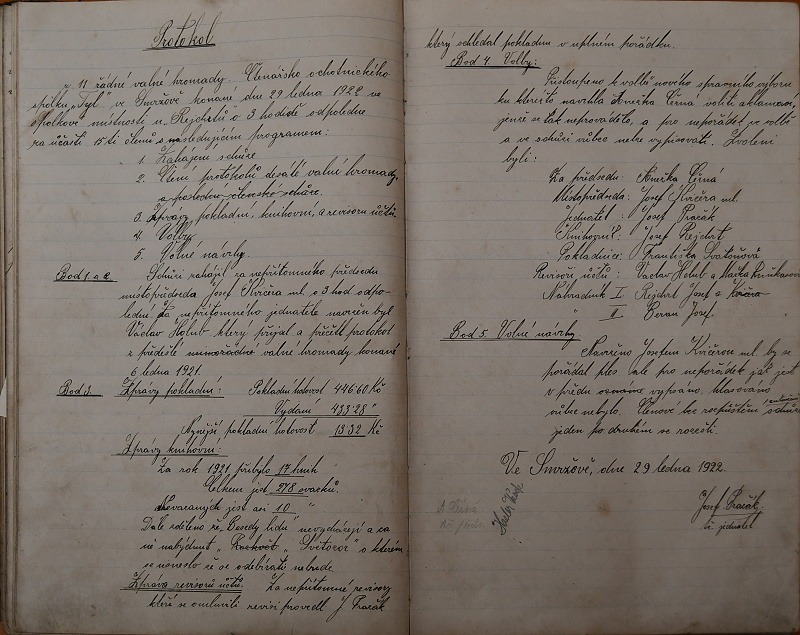 Protokol
z 11 řádné valné hromady Čtenářsko ochotnického
spolku „Tyl" ve Smržově konané dne 29 ledna 1922 ve
spolkové místnosti u Rejchrtů o 3 hodině odpoledne
za účasti 15 ti členů s následujícím programem:
1. Zahájení schůze
2. Čtení protokolů desáté valné hromady
a poslední členské schůze.
3. Zprávy pokladní, knihovní, a revisorů účtů
4. Volby
5. Volné návrhy.
Bod 1. a 2. Schůzi zahájil za nepřítomného předsedu
místopředseda Josef Kvičera ml. o 3 hod odpo-
ledne. Za nepřítomného jednatele navržen byl
Václav Holub který přijal a přečetl protokol
z předešlé mimořádné valné hromady konané
6 ledna 1921.
Bod 3. Zprávy pokladní: Pokladní hotovost 446·60 Kč
Vydání 433·28 "
Nynější pokladní hotovost 13·32 Kč
Zprávy knihovní:
Za rok 1921 přibylo 17 knih
Celkem jest 278 svazků.
Nevázaných jest asi 10 "
Dále sděleno že „Besedy lidu" nevycházejí a za
ně nabídnut „ Rozkvět „ Světozor" o kterém
se usneslo že se odebírati nebude.
Zpráva revisorů účtů. Za nepřítomné revisory
kteří se omluvili revisi provedl J. Pracák
který shledal pokladnu v úplném pořádku.
Bod 4. Volby:
Přistoupeno k volbě nového správního výboru
ku kterémto navrhla Anežka Černá voliti aklamací,
jenže se tak neprovádělo, a pro nepořádek ve volbě
a ve schůzi vůbec nelze vypisovati. Zvoleni
byli:
Za předsedu: Anežka Černá
Místopředseda: Josef Kvičera ml.
Jednatel: Josef Pracák
Knihovník: Josef Rejchrt
Pokladnice: Františka Svatoňová
Revisoři účtů: Václav Holub a
Náhradník I. Rejchrt Josef a Kvičera
" II Beran Josef.
Bod 5. Volné návrhy
Navrženo Josefem Kvičerou ml. by se
pořádal ples ale pro nepořádek jak jest
v předu vypsáno, hlasováno
vůbec nebylo. Členové bez rozpuštění schůze
jeden po druhém se rozešli.
Ve Smržově, dne 29 ledna 1922.
Josef Pracák
t.č. jednatel